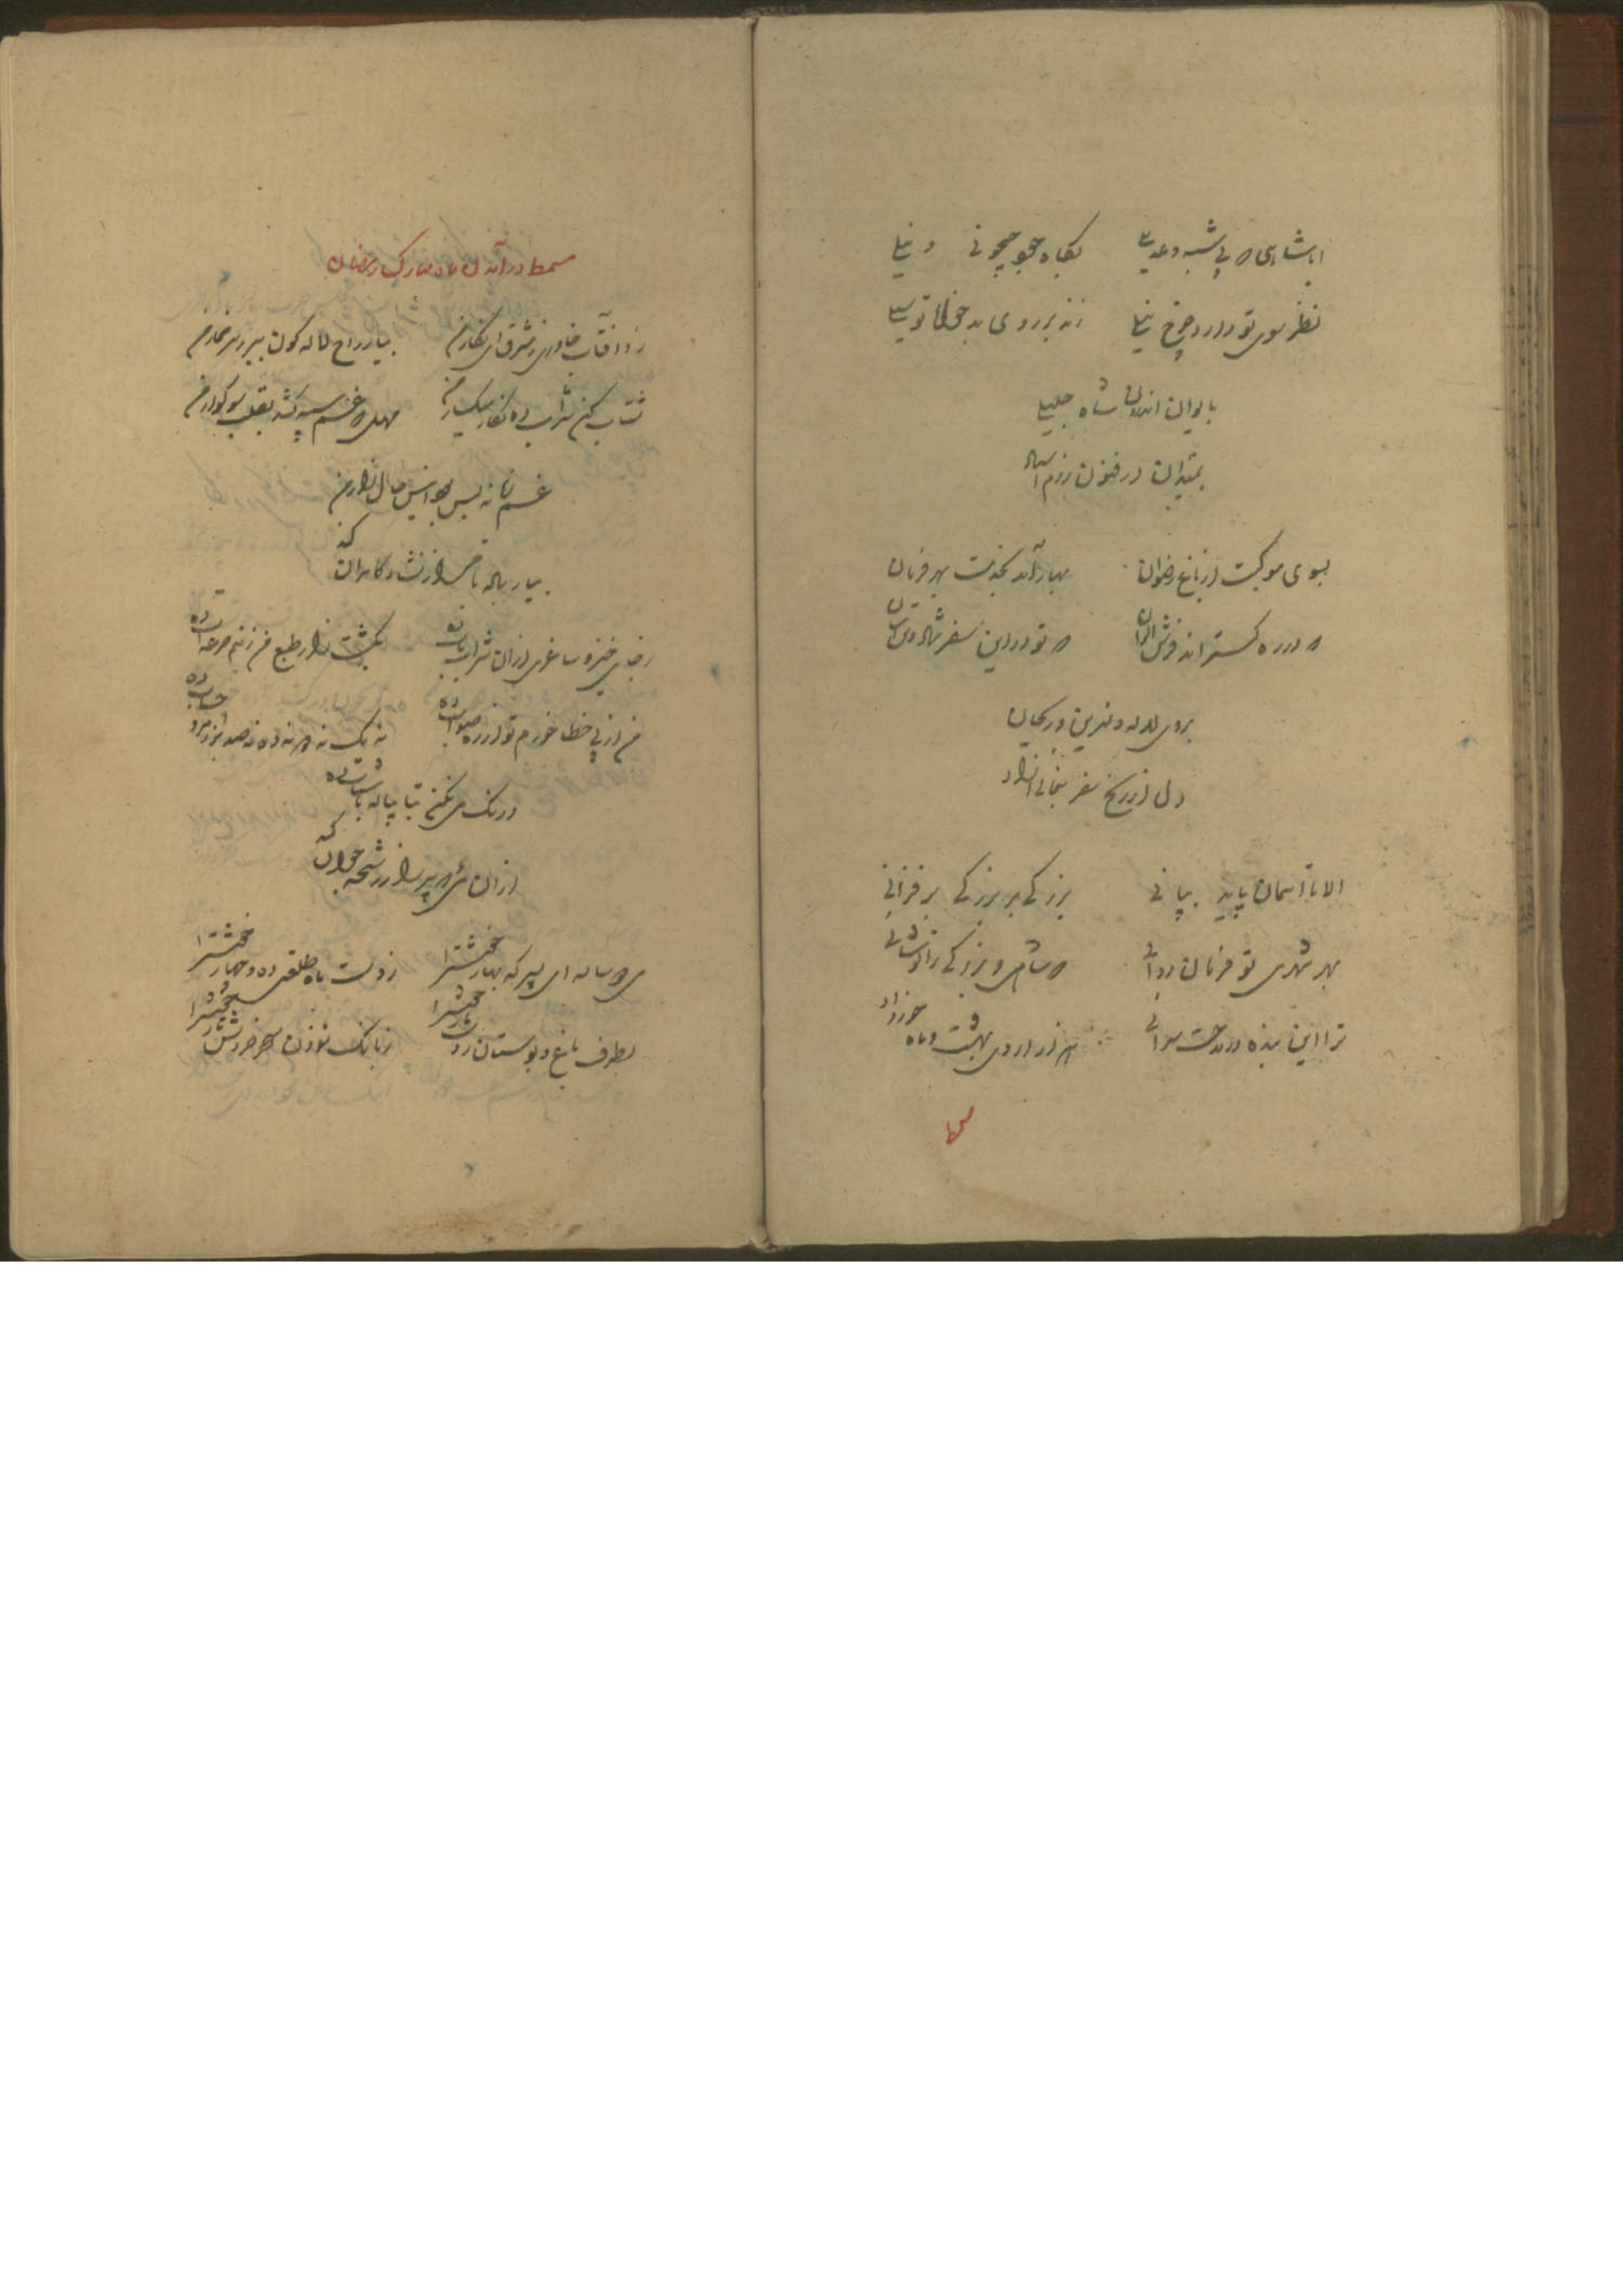 ایا شاهی که بی شبه و عدیلی بگاه جود چونی رود نیلی
نظر سوی تو دارد چرخ نیلی زند بر روی بدخواه تو سیلی
بایوان اندرون شاه جلیلی
بمیدان درفزون رزم
بسوی موکبت از باغ رضوان بهار آمد بخدمت بهر فرمان
که در ره گستراند فرش الوان که تو در این سفر شادی
بروی لاله و نسرین و ریحان
دل از رنج سفر
الا تا آسمان پاید بپائی بزرگی بر بزرگی برفزائی
بهر شهری تو فرمان روائی که شاهی و بزرگی را تو شائی
ترا این بنده در مدحت سرائی به از اردی بهشت و ماه خرداد
مسمط
مسمط در آمدن ماه مبارک رمضان
زد آفتاب خاوری ز مشرق ای نگار من بیار راح لاله گون ببر ز سر خمار من
شتاب کن شراب ده نگار میگسار من مهل که غم سپه کشد بقلب سوگوار من
غم زمانه پس بود انیس حال زار من
بیار باده تا مرا ز نشئه کامران کند
ز جای خیز و ساغری از آن شراب ناب ده بکشت زار طبع من ز نیم جرعه آب ده
من از پی خطا خورم تو از ره صواب ده نه یک نه ده نه صد بزن مرو حساب ده
درنگ می نکن بتا پیاله با شتاب ده
از آن می که پیر را ز رشحه جوان کند
می دو ساله ای پسر که بهار خوشتر است ز دست ماه طلعتی ده و چهار خوشتر است
بطرف باغ و بوستان ز دست یار خوشتر است ز بانگ مؤذن سحر خروش تار خوشتر است